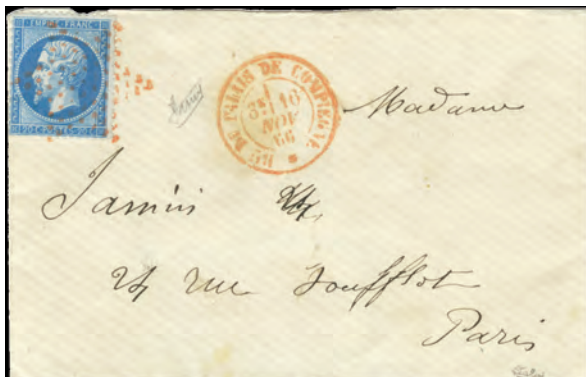 EMPIRE FRANC
20 C POSTES 20 C
Bᵁ DU PALAIS DE COMPIEGNE
3ᴱ
16
NOV
66
Madame
Jamin
24 rue Soufflot
Paris